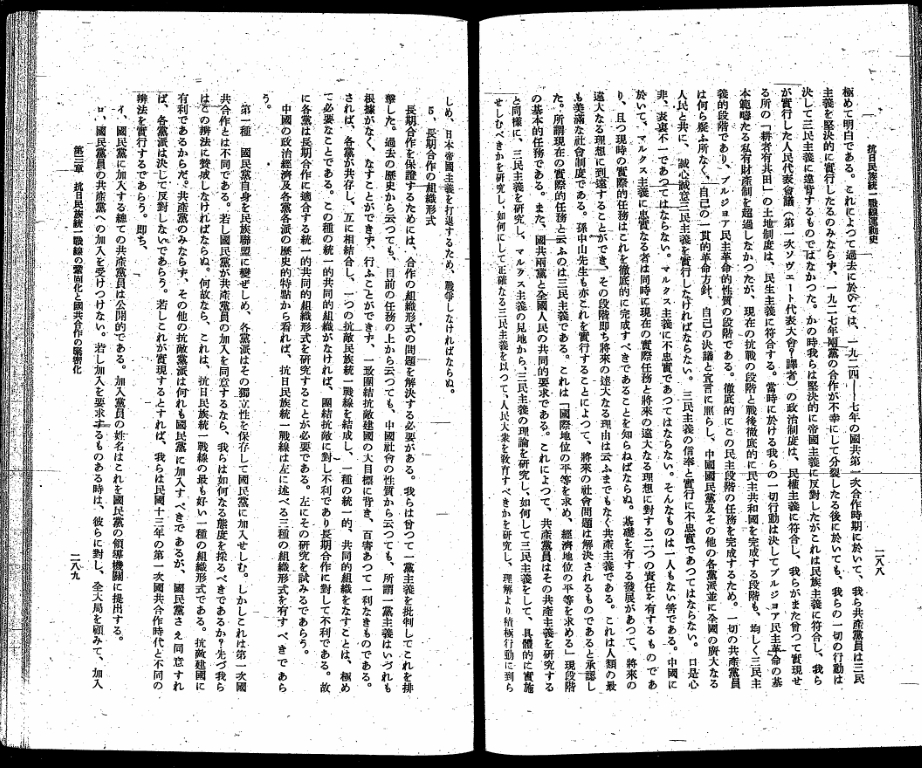 抗日民族統一戰線運動史
一八八
極めて明白である。これによつて過去に於ては、一九二四――七年の國共第一次合作時期に於いて、我ら共產黨員は三民
主義を堅決的に實行したるのみならず、一九二七年兩黨の合作が不幸にして分裂したる後に於いても、我らの一切の行動は
決して三民主義に違背するものではなかつた。かの時我らは堅決的に帝國主義に反對したがこれは民族主義に符合し、我ら
が實行した人民代表會議(第一次ソヴェート代表大會?譯者)の政治制度は、民權主義に符合し、我らがまた曾つて實現せ
る所の「耕者有其田」の土地制度は、民生主義に符合する。當時に於ける我らの一切行動は決してブルジョア民主革命の基
本範疇たる私有財產制を超過しなかつたが、現在の抗戰の段階と戰後徹底的に民主共和國を完成する段階も、均しく三民主
義的段階であり、ブルジョア民主革命的性質の段階である。徹底的にこの民主段階の任務を完成するため、一切の共產黨員
は何ら疑ふ所なく、自己の一貫的革命方針、自己の決議と宣言に照らし、中國國民黨及その他の各黨派並に全國の廣大なる
人民と共に、誠心誠意三民主義を實行しなければならない。三民主義の信奉と實行に不忠實であつてはならない。口是心
非、表裏不一であつてはならない。マルクス主義に不忠實であつてはならない。そんなものは一人もない筈である。中國に
於いて、マルクス主義に忠實なる者は同時に現在の實際任務と將來の遠大なる理想に對する二つの責任を有するものであ
り、且つ現時の實際的任務はこれを徹底的に完成すべきであることを知らねばならぬ。基礎を有する發展があつて、將來の
遠大なる理想に到達することができ、その段階即ち將來の遠大なる理由は云ふまでもなく共產主義である。これは人類の最
も美滿な社會制度である。孫中山先生も亦これを實行することによつて、將來の社會問題は解決されるものであると承認し
た。所謂現在の實際的任務と云ふのは三民主義である。これは「國際地位の平等を求め、經濟地位の平等を求める」現段階
の基本的任務である。また、國共兩黨と全國人民の共同的要求である。これによつて、共產黨員はその共產主義を研究する
と同樣に、三民主義を研究し、マルクス主義の見地から三民主義の理論を研究し、如何して三民主義をして、具體的に實施
せしむべきかを研究し、如何にして正確なる三民主義を以つて、人民大衆を敎育すべきかを研究し、理解より積極行動に到ら
しめ、日本帝國主義を打退するため、戰爭しなければならぬ。
5、長期合作の組織形式
長期合作を保證するためには、合作の組織形式の問題を解決する必要がある。我らは曾つて一黨主義を批判してこれを排
擊した。過去の歷史から云つても、目前の任務の上から云つても、中國社會の性質から云つても、所謂一黨主義はいづれも
根據がなく、なすことができず、行ふことができず、一致團結抗敵建國の大目標に背き、百害あつて一利なきものである。
されば、各黨が共存し、互に相結合し、一つの抗敵民族統一戰線を結成し、一種の統一的、共同的組織をなすことは、極め
て必要なことである。この種の統一的共同的組織がなければ、團結抗敵に對し不利であり長期合作に對して不利である。故
に各黨は長期合作に適合する統一的共同的組織形式を研究することが必要である。左にその研究を試みるであらう。
中國の政治經濟及各黨各派の歷史的特點から看れば、抗日民族統一戰線は左に述べる三種の組織形式を有すべきであら
う。
第一種 國民黨自身を民族聯盟に變ぜしめ、各黨派はその獨立性を保存して國民黨に加入せしむ。しかしこれは第一次國
共合作とは不同である。若し國民黨が共產黨員の加入を同意するなら、我らは如何なる態度を採るべきであるか?先づ我ら
はこの辨法に贊成しなければならぬ。何故なら、これは、抗日民族統一戰線の最も好い一種の組織形式である。抗敵建國に
有利であるからだ。共產黨のみならず、その他の抗敵黨派は何れも國民黨に加入すべきであるが、國民黨さえ同意すれ
ば、各黨派は決して反對しないであらう。若しこれが實現するとすれば、我らは民國十三年の第一次國共合作時代と不同の
辨法を實行するであらう。即ち、
イ、國民黨に加入する總ての共產黨員は公開的である。加入黨員の姓名はこれを國民黨の領導機關に提出する。
ロ、國民黨員の共產黨への加入を受けつけない。若し加入を要求するものある時は、彼らに對し、全大局を顧みて、加入
第三章 抗日民族統一戰線の鞏固化と國共合作の緊密化
二八九